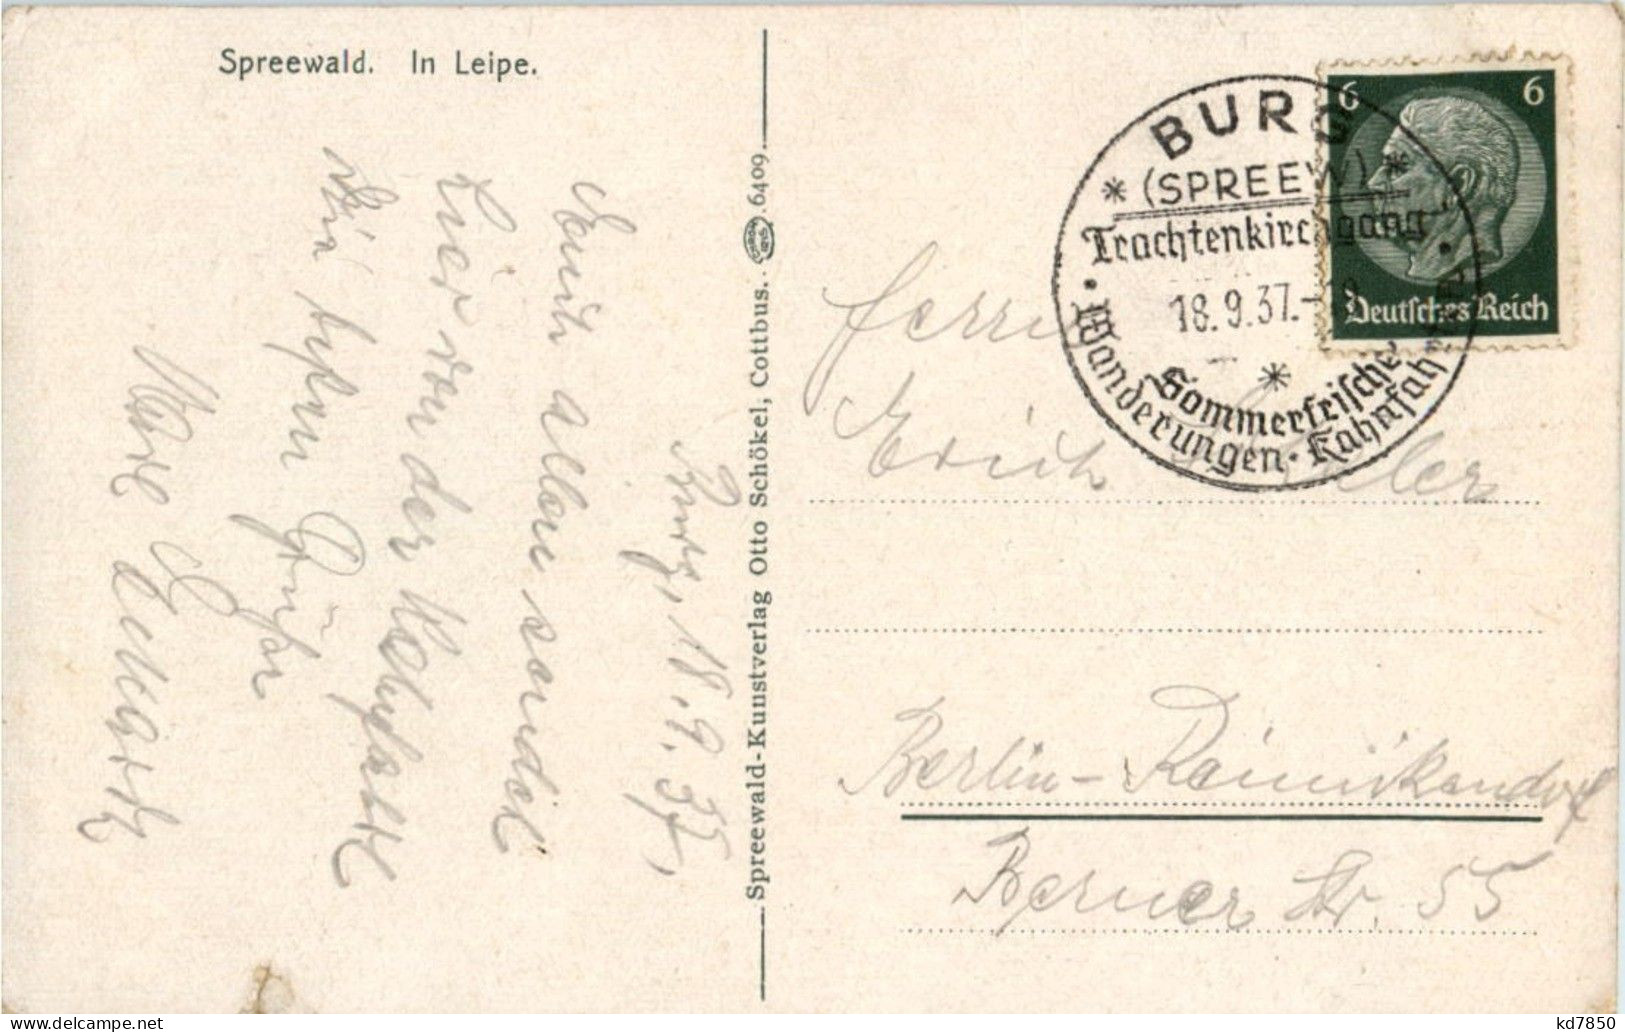 Spreewald. In Leipe.
Burg, 18. 9. 37,
Euch allen sendet
hier von der Kahnfahrt
die besten Grüße
Spreewald-Kunstverlag Otto Schökel, Cottbus. 6409
BURG
(SPREEW)
Trachtenkirchgang
18.9.37.-
Sommerfrische
Wanderungen · Kahnfahrten
6 6
Deutsches Reich
Herrn
Erich
Berlin-
Berner Str. 55
kd7850